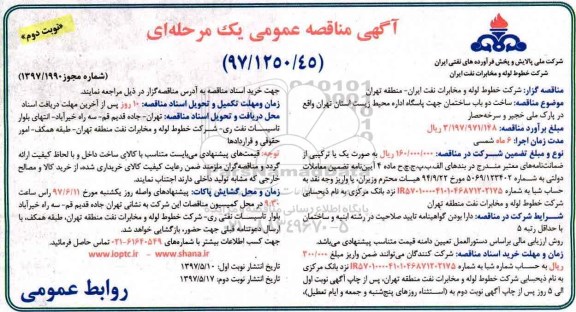 آگهی مناقصه عمومی یک مرحله‌ای
(۹۷/۱۲۵۰/۴۵)
«نوبت دوم»
(شماره مجوز ۱۳۹۷/۱۹۹۰)
شرکت ملی پالایش و پخش فرآورده های نفتی ایران
شرکت خطوط لوله و مخابرات نفت ایران
مناقصه گزار: شرکت خطوط لوله و مخابرات نفت ایران- منطقه تهران
موضوع مناقصه: ساخت دو باب ساختمان جهت پاسگاه اداره محیط زیست استان تهران واقع
در پارک ملی خجیر و سرخه‌حصار
مبلغ برآورد مناقصه: ۳/۱۹۷/۹۷۱/۱۴۸ ریال
مدت زمان اجرا: ۶ ماه شمسی
نوع و مبلغ تضمین شرکت در مناقصه: ۱۶۰/۰۰۰/۰۰۰ ریال به صورت یک یا ترکیبی از
ضمانت‌نامه‌های معتبر مندرج در بندهای الف،ب،پ،ج،چ،ح ماده ۴ آیین‌نامه تضمین معاملات
دولتی به شماره ۱۲۳۴۰۲/ت۵۰۶۵۹ه مورخ ۹۴/۹/۲۲ هیأت محترم وزیران، یا واریز وجه نقد به
حساب شبا به شماره نزد بانک مرکزی به نام ذیحسابی
شرکت خطوط لوله و مخابرات نفت منطقه تهران
شرایط شرکت در مناقصه: دارا بودن گواهینامه تایید صلاحیت در رشته ابنیه و ساختمان
با حداقل رتبه ۵
روش ارزیابی مالی براساس دستورالعمل تعیین دامنه قیمت متناسب پیشنهادی می‌باشد.
زمان و مهلت خرید اسناد مناقصه: شرکت کنندگان می‌توانند ضمن واریز مبلغ ۳۰۰/۰۰۰
ریال به حساب شماره شبا به شماره نزد بانک مرکزی
به نام ذیحسابی شرکت خطوط لوله و مخابرات نفت منطقه تهران، پس از چاپ آگهی نوبت اول
الی ۵ روز پس از چاپ آگهی نوبت دوم به (استثناء روزهای پنج‌شنبه و جمعه و ایام تعطیل)،
جهت خرید اسناد مناقصه به آدرس مناقصه‌گزار در ذیل مراجعه نمایند.
زمان ومهلت تکمیل و تحویل اسناد مناقصه: ۱۰ روز پس از آخرین مهلت دریافت اسناد
محل دریافت و تحویل اسناد مناقصه: تهران- جاده قدیم قم- سه راه خیرآباد- انتهای بلوار
تاسیسات نفت ری- شرکت خطوط لوله و مخابرات نفت منطقه تهران- طبقه همکف- امور
حقوقی و قراردادها
توجه: قیمت‌های پیشنهادی می‌بایست متناسب با کالای ساخت داخل و با لحاظ کیفیت ارائه
گردد و مناقصه‌گران ملزمند ضمن رعایت کیفیت کالای خریداری شده، از خرید کالا و مصالح
خارجی که مشابه تولید داخلی دارند اجتناب نمایند.
زمان و محل گشایش پاکات: پیشنهادهای واصله روز یکشنبه مورخ ۹۷/۶/۱۱ راس ساعت
۹:۳۰ در محل کمیسیون مناقصات این شرکت به نشانی تهران جاده قدیم قم- سه راه خیرآباد
بلوار تاسیسات نفتی ری- شرکت خطوط لوله و مخابرات نفت منطقه تهران، طبقه همکف، با
ارسال دعوتنامه قبلی جهت حضور، بازگشایی خواهد شد.
جهت کسب اطلاعات بیشتر با شماره‌های ۶۱۶۴۰۵۴۹-۰۲۱ تماس حاصل فرمائید.
www.shana.ir - www.ioptc.ir
تاریخ انتشار نوبت اول: ۱۳۹۷/۵/۱۰
تاریخ انتشار نوبت دوم: ۱۳۹۷/۵/۱۷
روابط عمومی